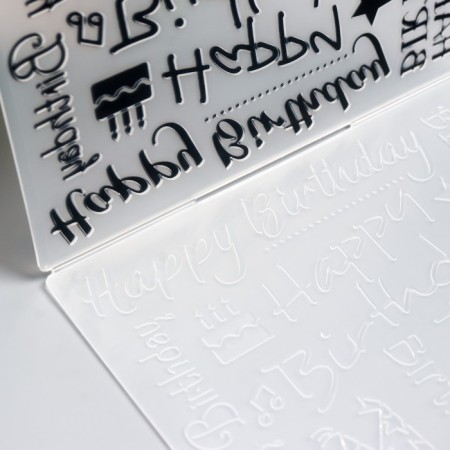 Birthday
Happy
Birthday
Happy
Happy Birthday
Happy Birthday
Happy
Birthday
Birthday